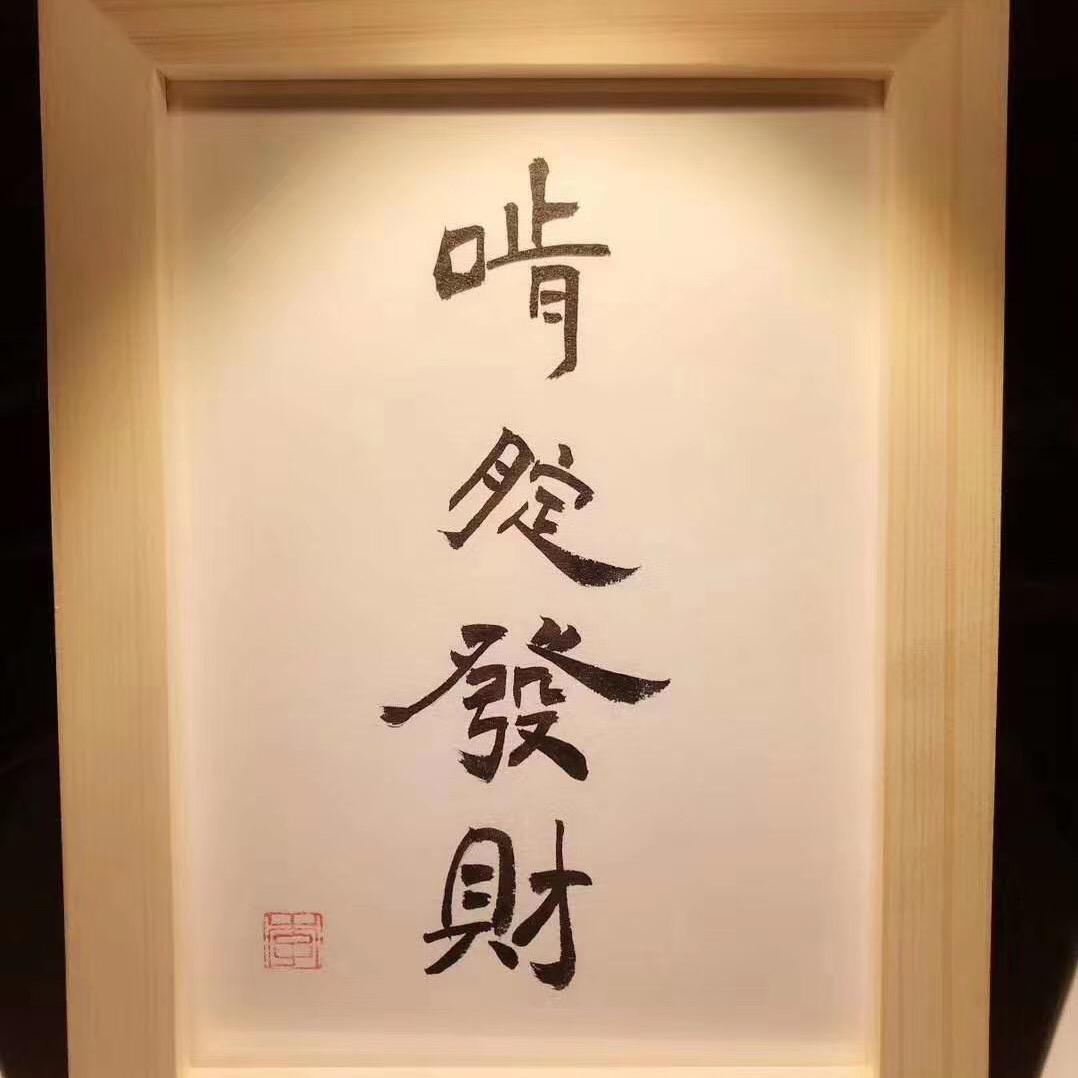 啃腚發財